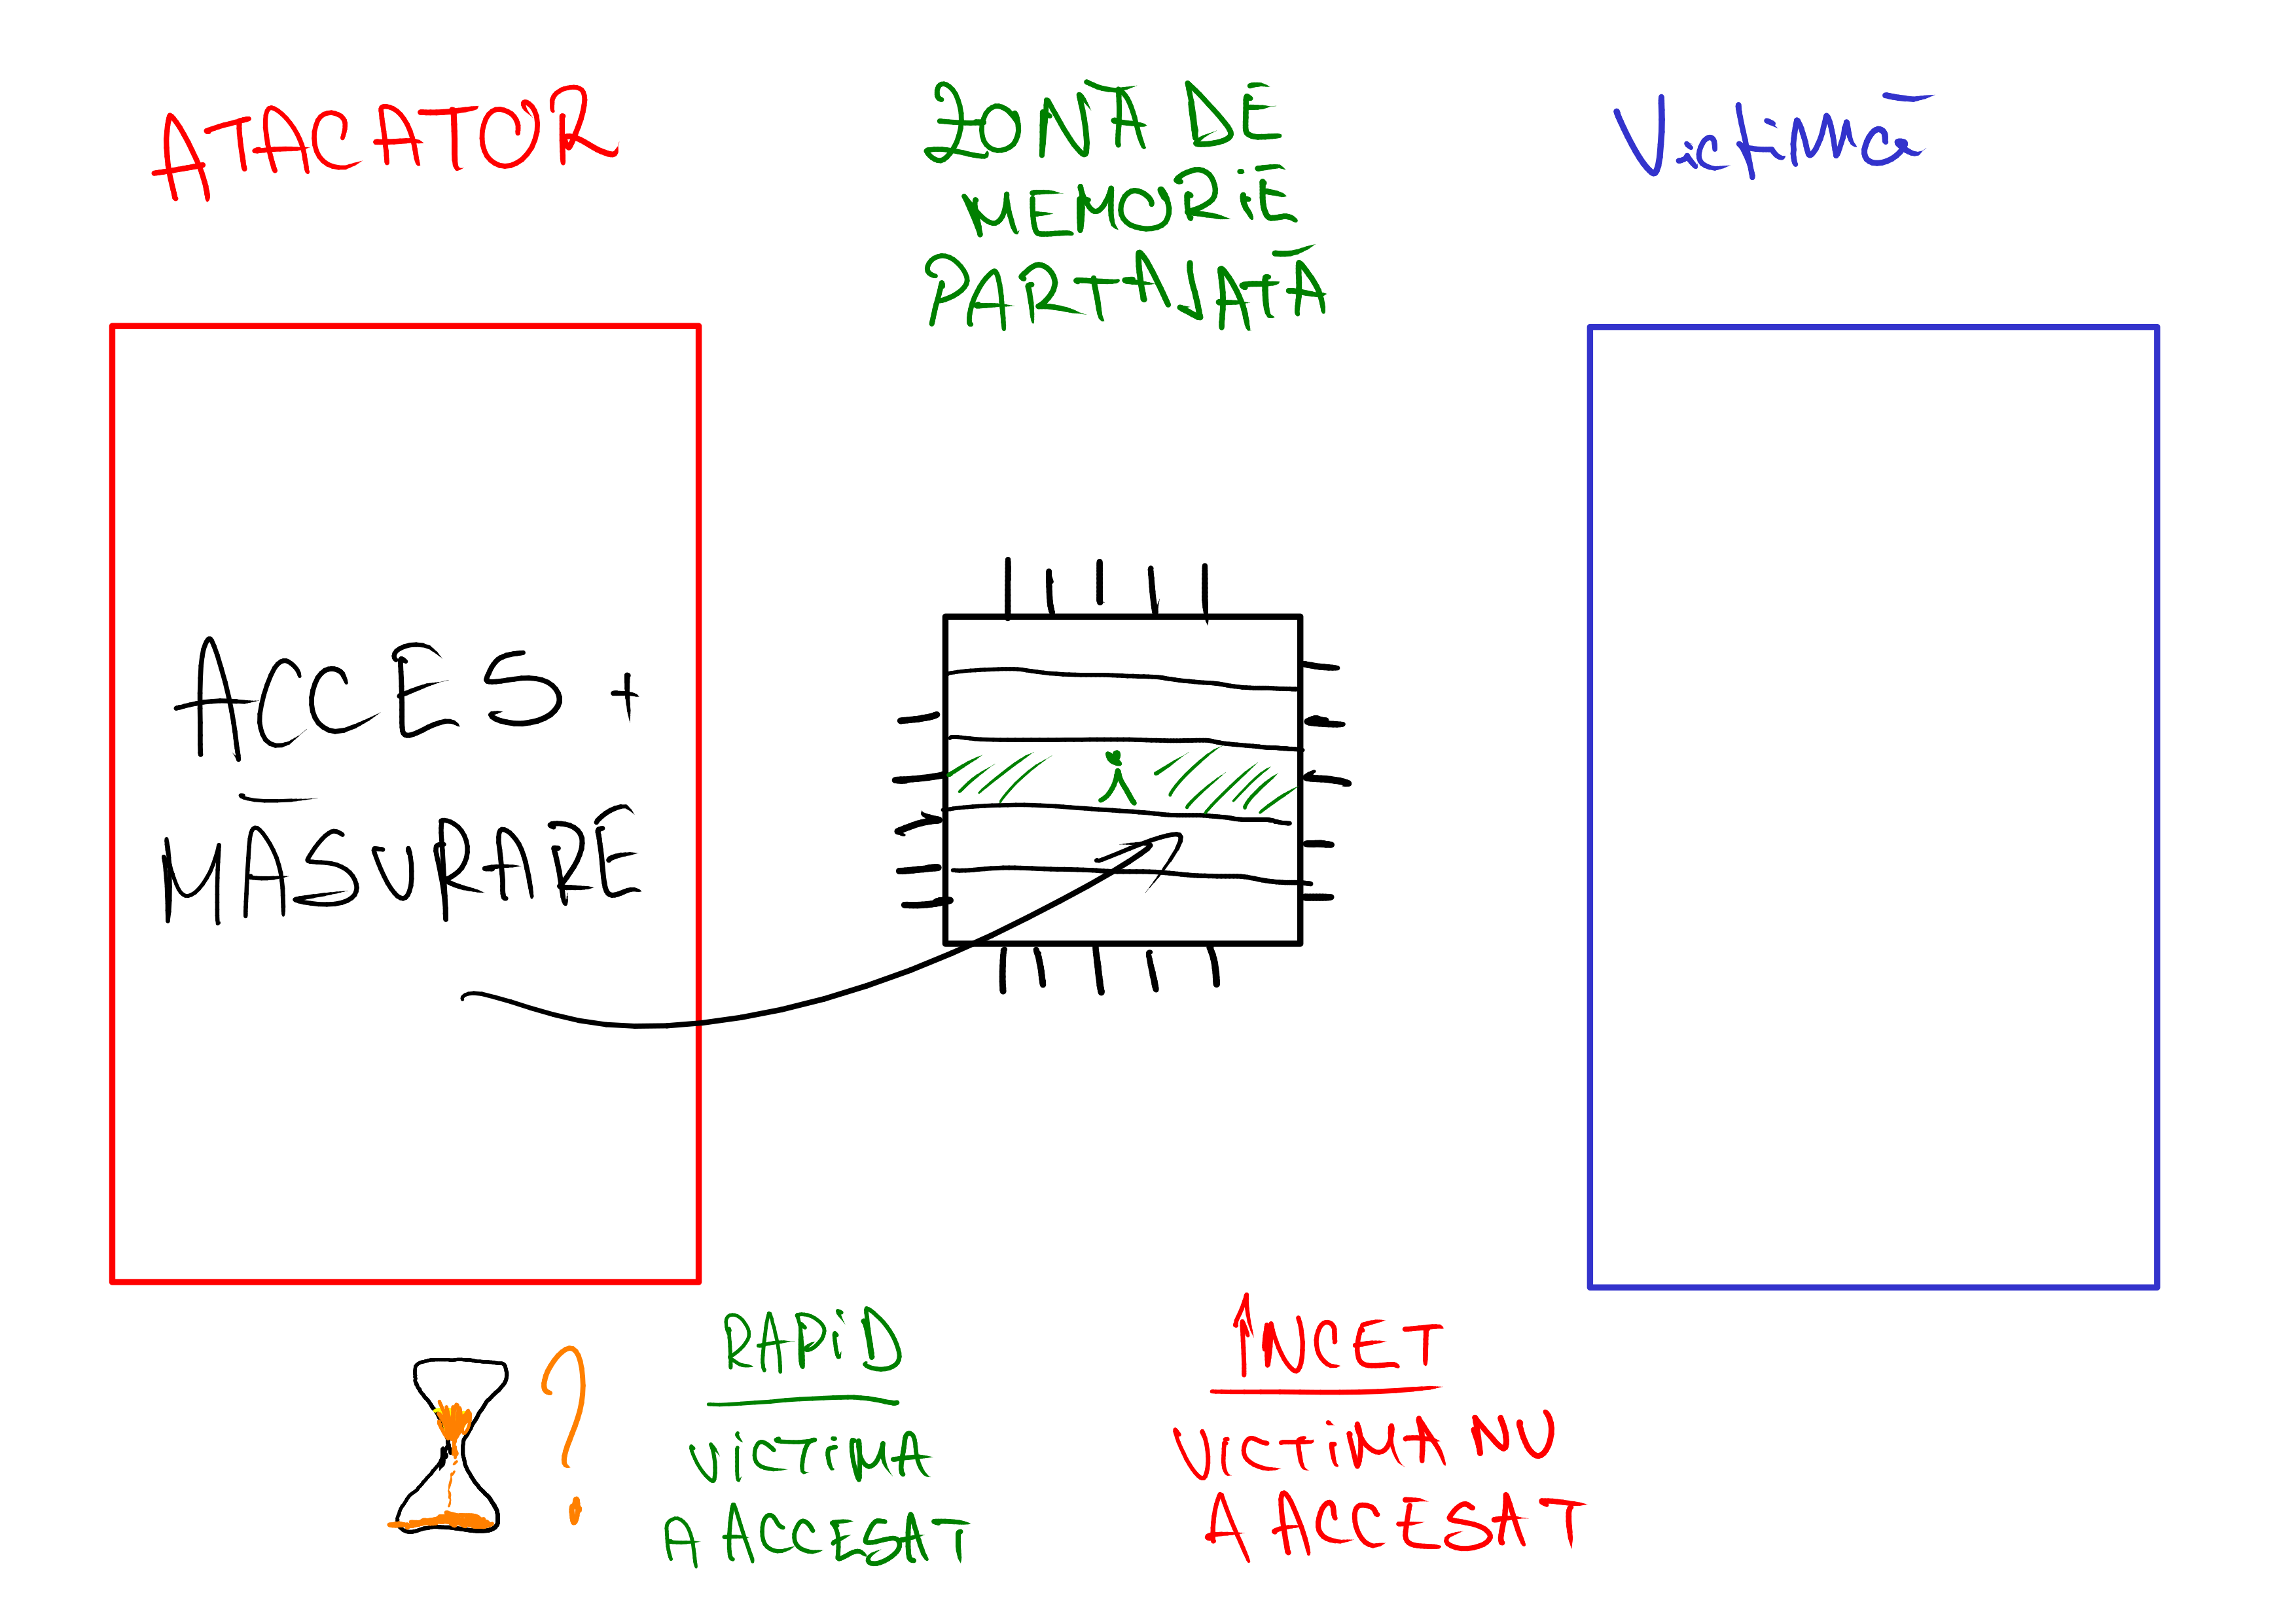 ATACATOR
ZONĂ DE
MEMORIE
PARTAJATĂ
Victimă
ACCES +
MĂSURARE
i
?
RAPID
VICTIMA
A ACCESAT
ÎNCET
VICTIMA NU
A ACCESAT